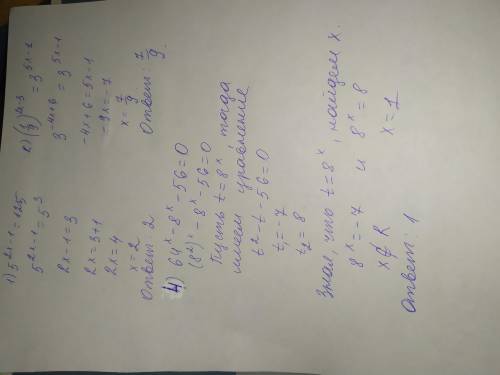 1) 5^{2x-1} = 125
5^{2x-1} = 5^3
2x-1 = 3
2x = 3+1
2x = 4
x = 2
Ответ: 2
4) 64^x - 8^x - 56 = 0
(8^2)^x - 8^x - 56 = 0
Пусть t = 8^x, тогда
имеем уравнение
t^2 - t - 56 = 0
t_1 = -7
t_2 = 8
Зная, что t = 8^x, найдем x.
8^x = -7 и 8^x = 8
x ∉ R x = 1
Ответ: 1
3^{-4x+6} = 3^{5x-1}
-4x+6 = 5x-1
-9x = -7
x = 7/9
Ответ: 7/9.